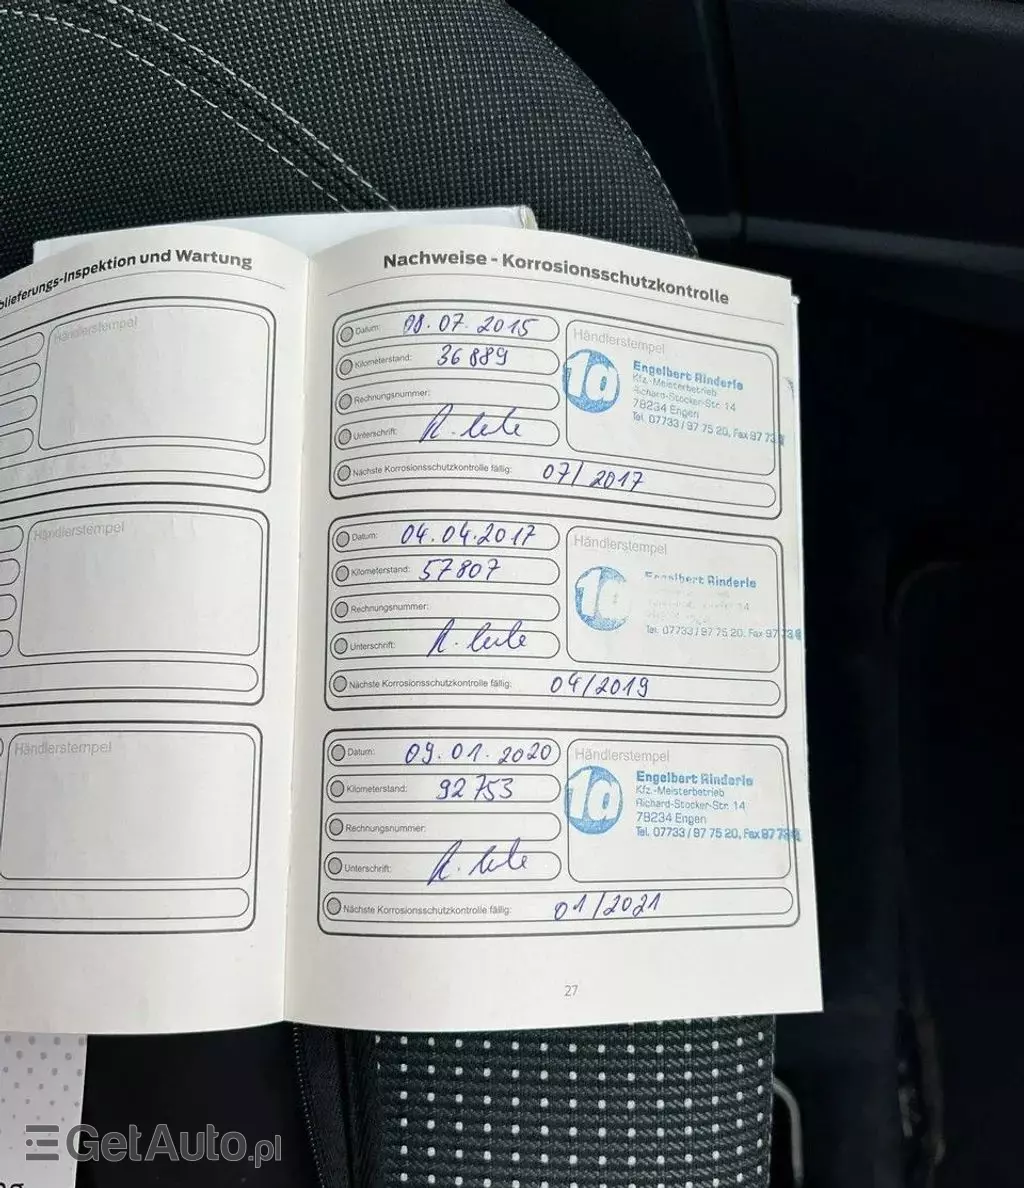 blieferungs-Inspektion und Wartung
Händlerstempel
Händlerstempel
Händlerstempel
Nachweise - Korrosionsschutzkontrolle
Datum: 08.07.2015
Kilometerstand: 36889
Rechnungsnummer:
Unterschrift:
Nächste Korrosionsschutzkontrolle fällig: 07/2017
Händlerstempel
1a
Engelbert Rinderle
Kfz.-Meisterbetrieb
Richard-Stocker-Str. 14
78234 Engen
Tel. 07733/97 75 20, Fax 97 73
Datum: 04.04.2017
Kilometerstand: 57807
Rechnungsnummer:
Unterschrift:
Nächste Korrosionsschutzkontrolle fällig: 04/2019
Händlerstempel
1a
Engelbert Rinderle
14
Tel. 07733/97 75 20, Fax 97 73
Datum: 09.01.2020
Kilometerstand: 92753
Rechnungsnummer:
Unterschrift:
Nächste Korrosionsschutzkontrolle fällig: 01/2021
Händlerstempel
1a
Engelbert Rinderle
Kfz.-Meisterbetrieb
Richard-Stocker-Str. 14
78234 Engen
Tel. 07733/97 75 20, Fax 97 73
27
GetAuto.pl